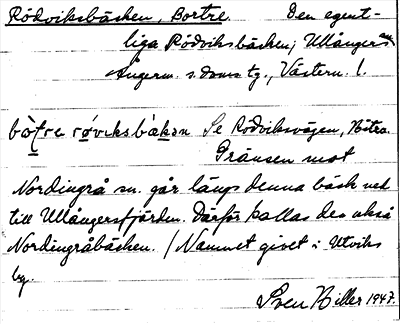 Rödviksbäcken, Bortre. Den egent-
liga Rödviksbäcken; Ullångers
Ångerm. s. doms tg., Västern. l.
bòt̯re rǿviksbàkən Se Rödviksvägen, Hitre.
Gränsen mot
Nordingrå sn. går längs denna bäck ned
till Ullångersfjärden. Därför kallas den också
Nordingråbäcken. / Namnet givet i Utviks
by.
Sven Hiller 1947.